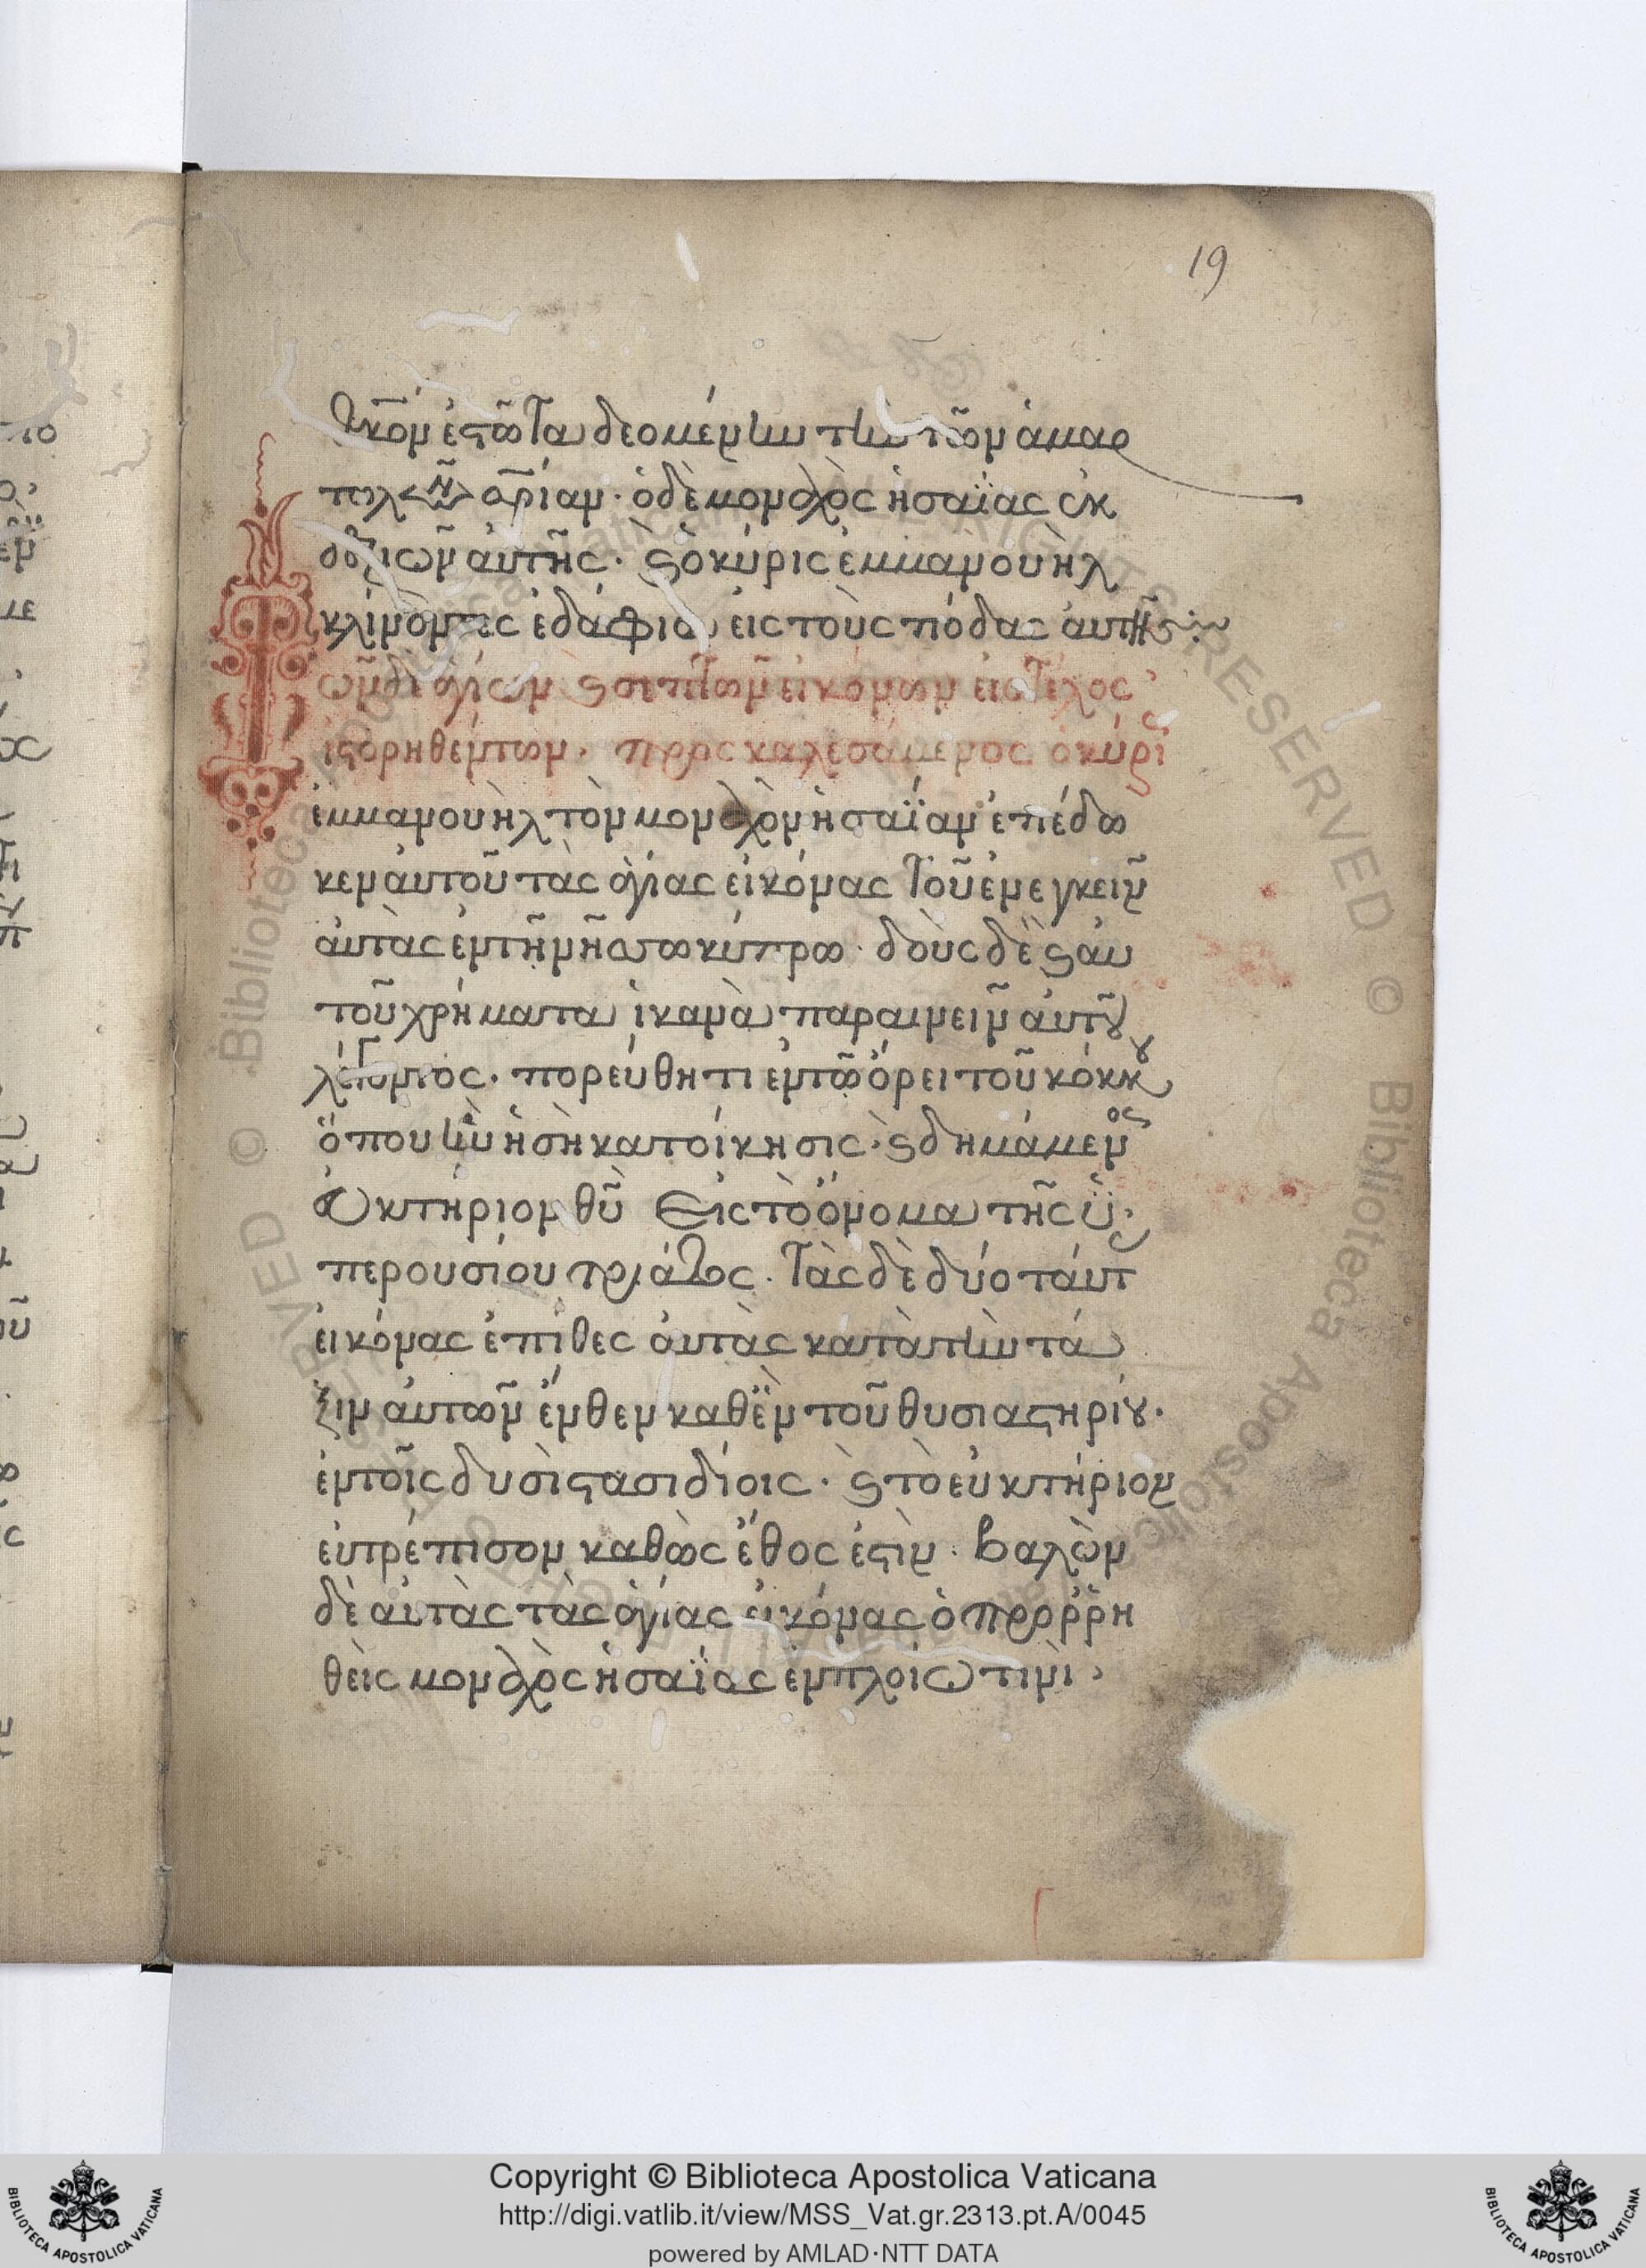 19
θ(εο)τόκον ἑστῶτα δεομένην τὴν τῶν ἁμαρ
τωλῶν σ(ωτη)ρίαν· ὁ δὲ μοναχὸς ἡσαΐας ἐκ
δεξιῶν αὐτῆς· ϛ ὁ κύρις ἐμμανουὴλ
κλίνοντες ἐδάφια εἰς τοὺς πόδας αὐτῆς
ῶν δὲ ἁγίων ϛ σεπτῶν εἰκόνων εἰς τέλος
ἱστορηθέντων· προσκαλεσάμενος ὁ κύρις
ἐμμανουὴλ τὸν μοναχὸν ἡσαΐαν ἐπέδω
κεν αὐτοῦ τὰς ἁγίας εἰκόνας τοῦ ἐνεγκεῖν
αὐτὰς ἐν τῇ νήσω κύπρω· δοὺς δὲ ϛ αὐ
τοῦ χρήματα ἱκανὰ παραινεῖν αὐτοῦ
λέγοντος· πορεύθητι ἐν τῶ ὄρει τοῦ κόκκου
ὅπου ἦν ἡ σὴ κατοίκησις· ϛ δημάμενος
εὐκτήριον θῦ εἰς τὸ ὄνομα τῆς ὑ
περουσίου τριάδος· τὰς δὲ δύο ταύτ
εἰκόνας ἐπίθες αὐτὰς κατὰ τὴν τά
ξιν αὐτῶν ἔνθεν καθὲν τοῦ θυσιαστηρίου·
ἐν τοῖς δυσὶ στασιδίοις· ϛ τὸ εὐκτήριον
εὐτρέπισον καθὼς ἔθος ἐστὶν· βαλὼν
δὲ αὐτὰς τὰς ἁγίας εἰκόνας ὁ προρρη
θεὶς μοναχὸς ἡσαΐας ἐν πλοίω τινὶ
Copyright © Biblioteca Apostolica Vaticana
http://digi.vatlib.it/view/MSS_Vat.gr.2313.pt.A/0045
powered by AMLAD·NTT DATA
BIBLIOTECA APOSTOLICA VATICANA
BIBLIOTECA APOSTOLICA VATICANA